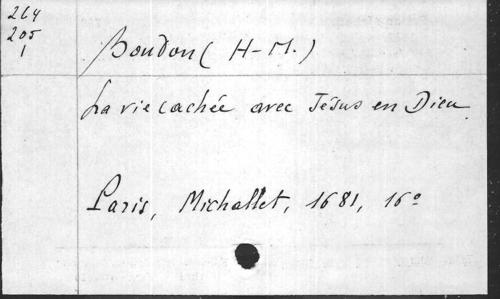 264
205
1
Boudon (H-M.)
La vie cachée avec Jésus en Dieu
Paris, Michallet, 1681, 16º